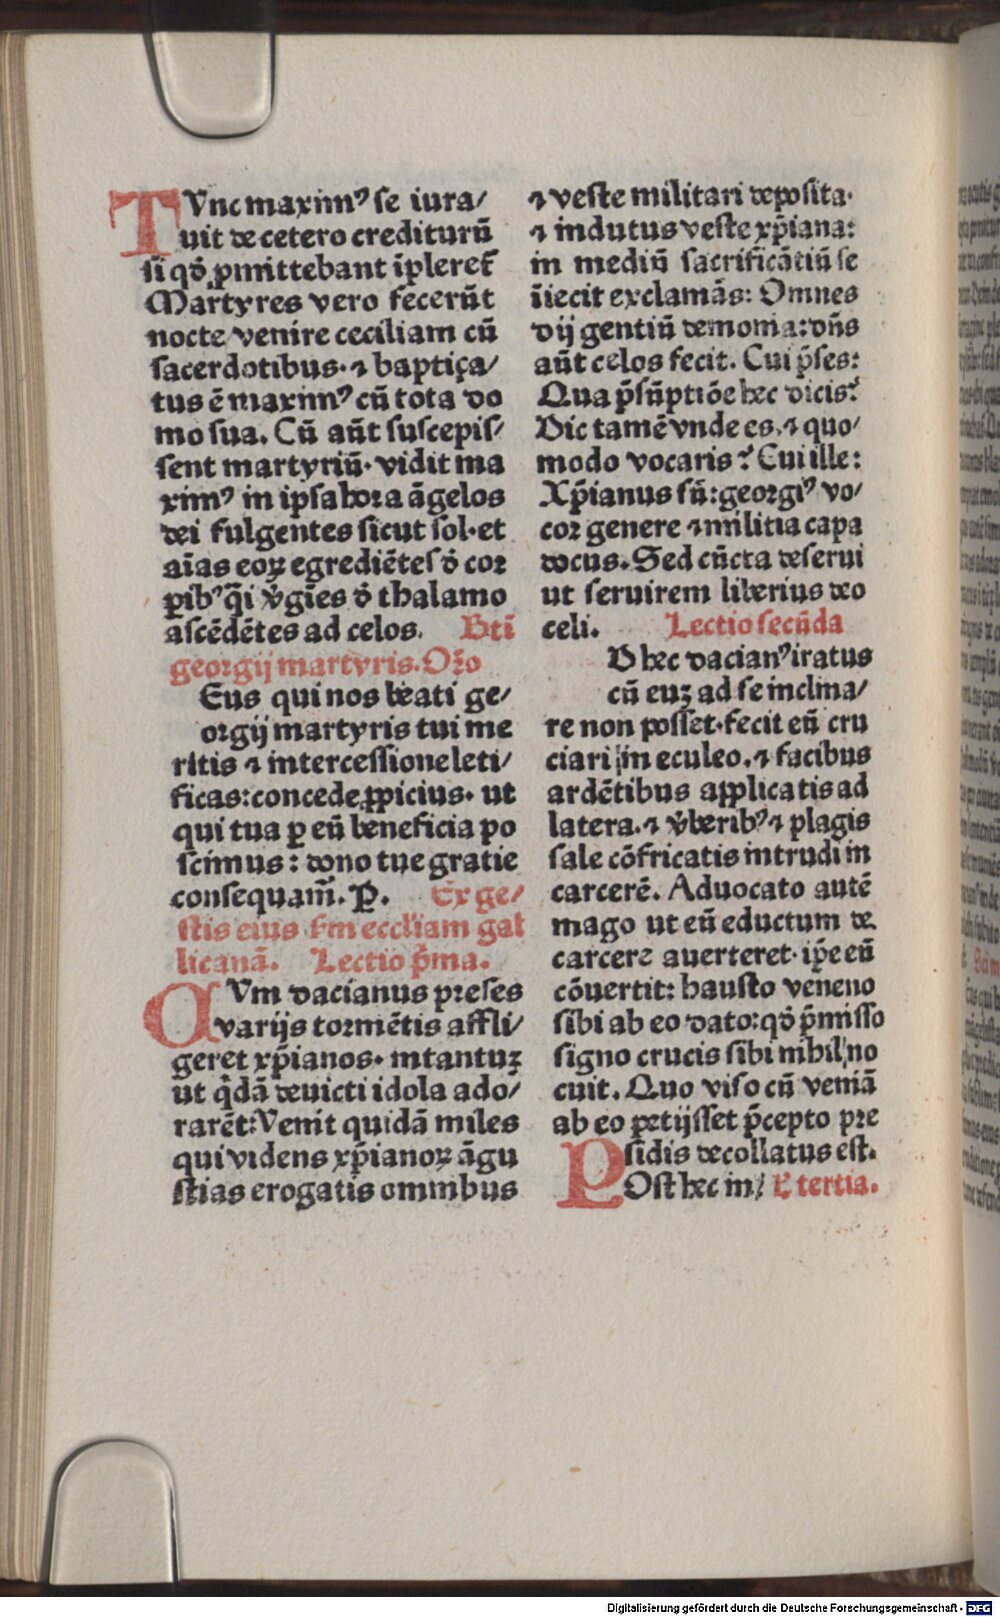 TVnc maximꝰ se iura/
uit de cetero crediturū
si qd̕ ꝓmittebant īpleret᷑
Martyres vero fecerūt
nocte venire ceciliam cū
sacerdotibus. ⁊ baptiça/
tus ē maximꝰ cū tota do
mo sua. Cū aūt suscepis/
sent martyriū. vidit ma
ximꝰ in ipsa hora āgelos
dei fulgentes sicut sol. et
aīas eoꝝ egrediētes d̕ cor
ꝑibꝰ q̄i v̕gīes d̕ thalamo
ascēdētes ad celos. Bti̅
georgij martyris. Or̕o
Eus qui nos beati ge/
orgij martyris tui me
ritis ⁊ intercessione leti/
ficas: concede ꝓpicius. ut
qui tua ꝑ eū beneficia po
scimus: dono tue gratie
consequam̄. P̱. Ex ge/
stis eius s̕m eccl̕iam gal
licanā. Lectio p̄ma.
CVm dacianus preses
varijs tormētis affli/
geret xp̄ianos. intantuꝫ
ut q̄dā deuicti idola ado/
rarēt: Venit quidā miles
qui videns xp̄ianoꝝ āgu
stias erogatis omnibus
⁊ veste militari deposita.
⁊ indutus veste xp̄iana:
in mediū sacrificātiū se
īiecit exclamās: Omnes
dij gentiū demonia: dn̄s
aūt celos fecit. Cui p̄ses:
Qua p̄sūptiōe hec dicis?
Dic tamē vnde es. ⁊ quo/
modo vocaris? Cui ille:
Xp̄ianus sū: georgiꝰ vo/
cor genere ⁊ militia capa
docus. Sed cūcta deserui
ut seruirem liberius deo
celi. Lectio secūda
D hec dacianꝰ iratus
cū euꝫ ad se inclina/
re non posset. fecit eū cru
ciari in eculeo. ⁊ facibus
ardētibus applicatis ad
latera. ⁊ v̕beribꝰ ⁊ plagis
sale cōfricatis intrudi in
carcerē. Aduocato autē
mago ut eū eductum de
carcere auerteret. ip̄e eū
cōuertit: hausto veneno
sibi ab eo dato: qd̕ p̄misso
signo crucis sibi nihil no
cuit. Quo viso cū veniā
ab eo petijsset p̄cepto pre
sidis decollatus est.
POst hec in/ L̕ tertia.
Digitalisierung gefördert durch die Deutsche Forschungsgemeinschaft - DFG